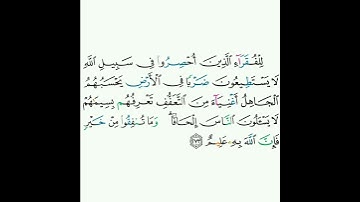 لِلْفُقَرَآءِ ٱلَّذِينَ أُحْصِرُوا۟ فِى سَبِيلِ ٱللَّهِ
لَا يَسْتَطِيعُونَ ضَرْبًا فِى ٱلْأَرْضِ يَحْسَبُهُمُ
ٱلْجَاهِلُ أَغْنِيَآءَ مِنَ ٱلتَّعَفُّفِ تَعْرِفُهُم بِسِيمَٰهُمْ
لَا يَسْـَٔلُونَ ٱلنَّاسَ إِلْحَافًا ۗ وَمَا تُنفِقُوا۟ مِنْ خَيْرٍ
فَإِنَّ ٱللَّهَ بِهِۦ عَلِيمٌ ﴿٢٧٣﴾